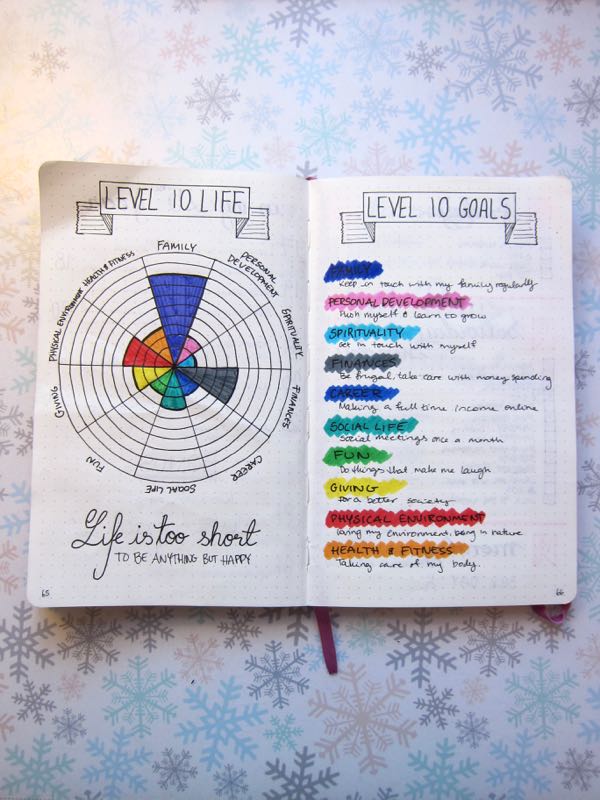 LEVEL 10 LIFE
FAMILY
PERSONAL
DEVELOPMENT
SPIRITUALITY
FINANCES
CAREER
SOCIAL LIFE
FUN
GIVING
PHYSICAL ENVIRONMENT
HEALTH & FITNESS
Life is too short
TO BE ANYTHING BUT HAPPY
65
LEVEL 10 GOALS
FAMILY
Keep in touch with my family regularly
PERSONAL DEVELOPMENT
Push myself & learn to grow
SPIRITUALITY
Get in touch with myself
FINANCES
Be frugal, take care with money spending
CAREER
Making a full time income online
SOCIAL LIFE
Social meetings once a month
FUN
Do things that make me laugh
GIVING
For a better society
PHYSICAL ENVIRONMENT
Loving my environment, being in nature
HEALTH & FITNESS
Taking care of my body.
66